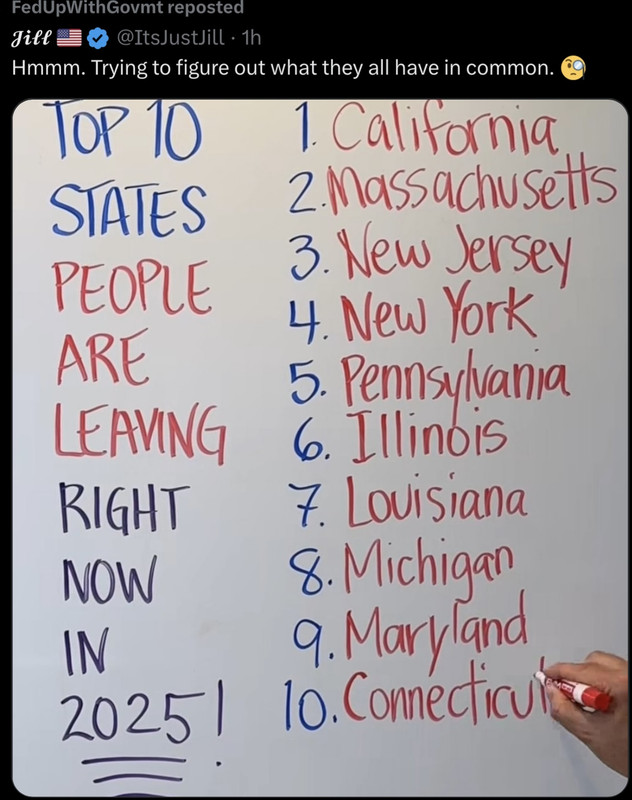 FedUpWithGovmt reposted
Jill 🇺🇸 @ItsJustJill · 1h
Hmmm. Trying to figure out what they all have in common. 🧐
TOP 10
STATES
PEOPLE
ARE
LEAVING
RIGHT
NOW
IN
2025!
1. California
2. Massachusetts
3. New Jersey
4. New York
5. Pennsylvania
6. Illinois
7. Louisiana
8. Michigan
9. Maryland
10. Connecticut